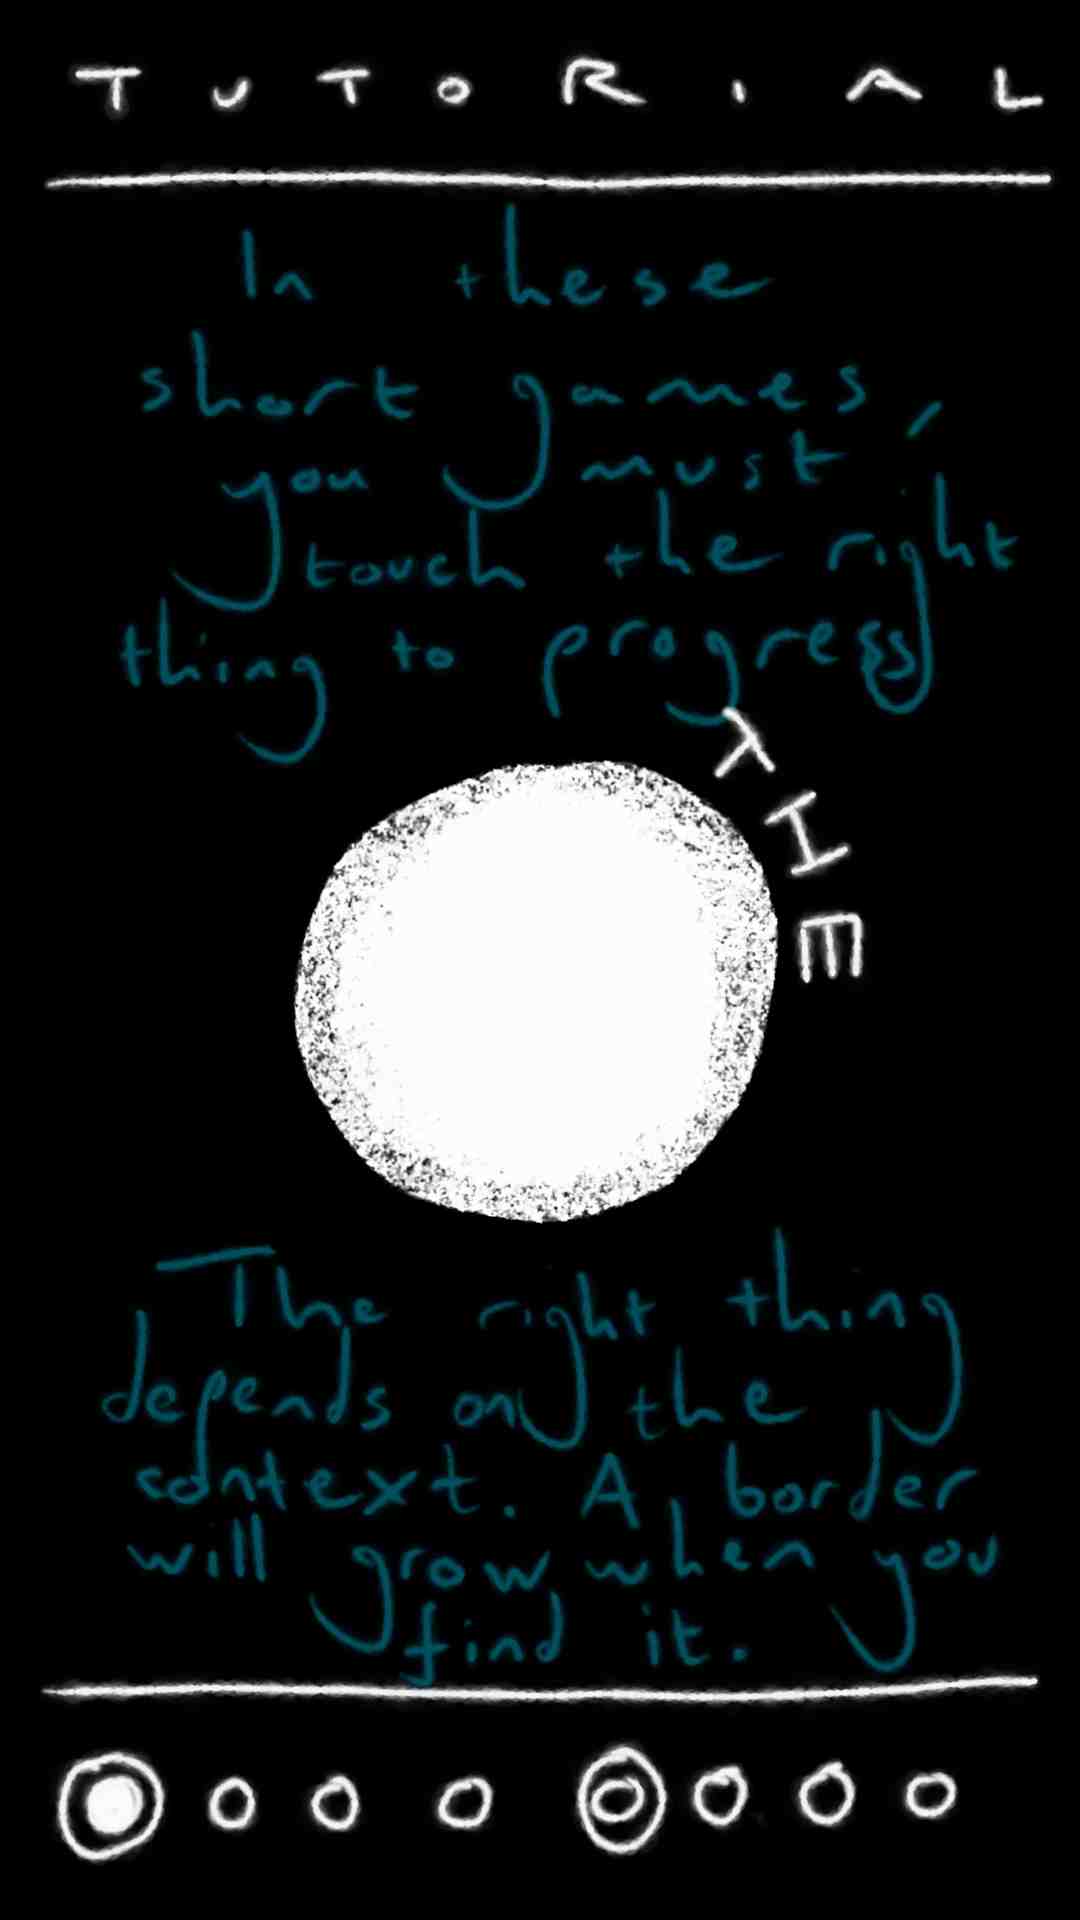 TUTORIAL
In these
short games,
you must
touch the right
thing to progress
The right thing
depends on the
context. A border
will grow when you
find it.